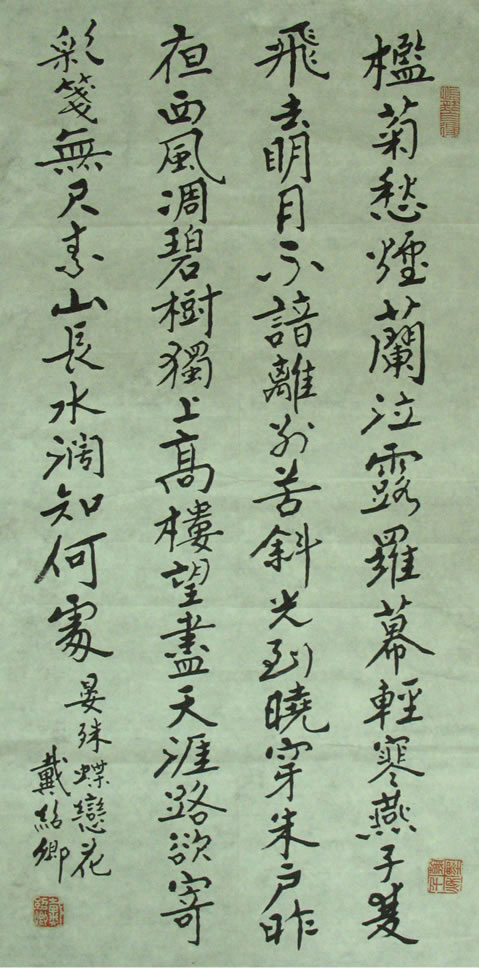 檻菊愁煙蘭泣露羅幕輕寒燕子雙
飛去明月不諳離別苦斜光到曉穿朱戶昨
夜西風凋碧樹獨上高樓望盡天涯路欲寄
彩箋無尺素山長水闊知何處
晏殊蝶戀花
戴紹卿